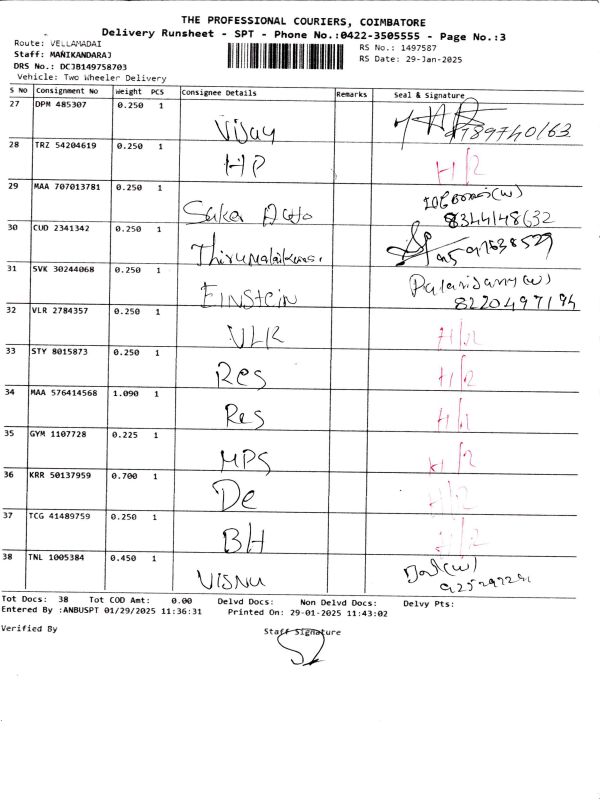 THE PROFESSIONAL COURIERS, COIMBATORE
Delivery Runsheet - SPT - Phone No.:0422-3505555 - Page No.:3
Route: VELLAMADAI
Staff: MANIKANDARAJ
RS No.: 1497587
DRS No.: DCJB149758703
RS Date: 29-Jan-2025
Vehicle: Two Wheeler Delivery
S No Consignment No Weight PCS Consignee Details Remarks Seal & Signature
27 DPM 485307 0.250 1 Vijay
28 TRZ 54204619 0.250 1 HP H/2
29 MAA 707013781 0.250 1 Auto 8344148632
30 CUD 2341342 0.250 1
31 SVK 30244068 0.250 1 EINstein 8220497194
32 VLR 2784357 0.250 1 VLR
33 STY 8015873 0.250 1 Res H/2
34 MAA 576414568 1.090 1 Res
35 GYM 1107728 0.225 1 MPS H/2
36 KRR 50137959 0.700 1 De H/2
37 TCG 41489759 0.250 1 BH H/2
38 TNL 1005384 0.450 1 VISNU
Tot Docs: 38 Tot COD Amt: 0.00 Delvd Docs: Non Delvd Docs: Delvy Pts:
Entered By :ANBUSPT 01/29/2025 11:36:31 Printed On: 29-01-2025 11:43:02
Verified By Staff Signature